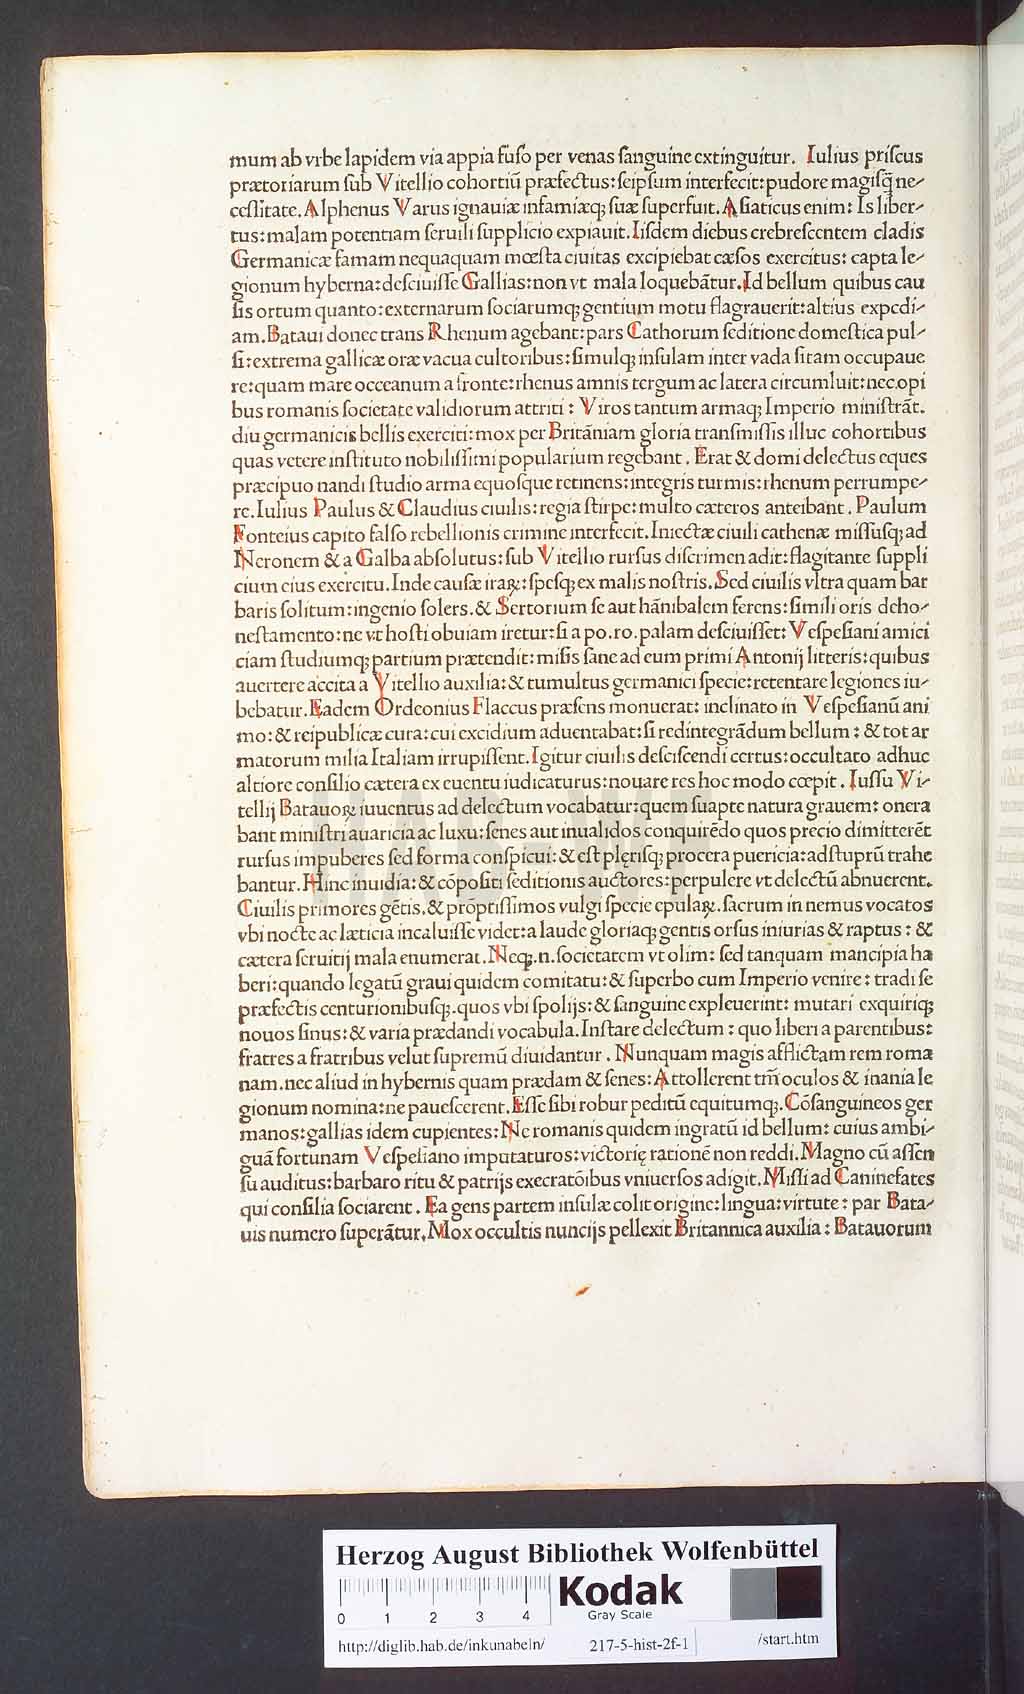 mum ab vrbe lapidem via appia fuſo per venas ſanguine extinguitur. Iulius priſcus
prætoriarum ſub Vitellio cohortiū præfectus: ſeipſum interfecit: pudore magiſq̃ ne⸗
ceſſitate. Alphenus Varus ignauiæ infamiæq; ſuæ ſuperfuit. Aſiaticus enim: Is liber⸗
tus: malam potentiam ſeruili ſupplicio expiauit. Iiſdem diebus crebreſcentem cladis
Germanicæ famam nequaquam mœſta ciuitas excipiebat cæſos exercitus: capta le⸗
gionum hyberna: deſciuiſſe Gallias: non vt mala loquebãtur. Id bellum quibus cau
ſis ortum quanto: externarum ſociarumq; gentium motu flagrauerit: altius expedi⸗
am. Bataui donec trans Rhenum agebant: pars Cathorum ſeditione domeſtica pul⸗
ſi: extrema gallicæ oræ vacua cultoribus: ſimulq; inſulam inter vada ſitam occupaue
re: quam mare occeanum a fronte: rhenus amnis tergum ac latera circumluit: nec opi
bus romanis ſocietate validiorum attriti: Viros tantum armaq; Imperio miniſtrãt.
diu germanicis bellis exerciti: mox per Britãniam gloria tranſmiſſis illuc cohortibus
quas vetere inſtituto nobiliſſimi popularium regebant. Erat & domi delectus eques
præcipuo nandi ſtudio arma equoſque retinens: integris turmis: rhenum perrumpe⸗
re. Iulius Paulus & Claudius ciuilis: regia ſtirpe: multo cæteros anteibant. Paulum
Fonteius capito falſo rebellionis crimine interfecit. Iniectæ ciuili cathenæ miſſuſq; ad
Neronem & a Galba abſolutus: ſub Vitellio rurſus diſcrimen adit: flagitante ſuppli
cium eius exercitu. Inde cauſæ iraꝝ: ſpeſq; ex malis noſtris. Sed ciuilis vltra quam bar
baris ſolitum: ingenio ſolers. & Sertorium ſe aut hãnibalem ferens: ſimili oris deho⸗
neſtamento: ne vt hoſti obuiam iretur: ſi a po. ro. palam deſciuiſſet: Veſpeſiani amici
ciam ſtudiumq; partium prætendit: miſis ſane ad eum primi Antonij litteris: quibus
auertere accita a Vitellio auxilia: & tumultus germanici ſpecie: retentare legiones iu⸗
bebatur. Eadem Ordeonius Flaccus præſens monuerat: inclinato in Veſpeſianũ ani
mo: & reipublicæ cura: cui excidium aduentabat: ſi redintegrãdum bellum: & tot ar
matorum milia Italiam irrupiſſent. Igitur ciuilis deſciſcendi certus: occultato adhuc
altiore conſilio cætera ex euentu iudicaturus: nouare res hoc modo cœpit. Iuſſu Vi⸗
tellij Batauoꝝ iuuentus ad delectum vocabatur: quem ſuapte natura grauem: onera
bant miniſtri auaricia ac luxu: ſenes aut inualidos conquirẽdo quos precio dimitterẽt
rurſus impuberes ſed forma conſpicui: & eſt plęriſq; procera puericia: ad ſtuprũ trahe
bantur. Hinc inuidia: & cõpoſiti ſeditionis auctores: perpulere vt delectũ abnuerent.
Ciuilis primores gẽtis. & proptiſſimos vulgi ſpecie epulaꝝ. ſacrum in nemus vocatos
vbi nocte ac læticia incaluiſſe videt: a laude gloriaq; gentis orſus iniurias & raptus: &
cætera ſeruitij mala enumerat. Neq;.n. ſocietatem vt olim: ſed tanquam mancipia ha
beri: quando legatũ graui quidem comitatu: & ſuperbo cum Imperio venire: tradi ſe
præfectis centurionibuſq;. quos vbi ſpolijs: & ſanguine expleuerint: mutari exquiriq;
nouos ſinus: & varia prædandi vocabula. Inſtare delectum: quo liberi a parentibus:
fratres a fratribus velut ſupremũ diuidantur. Nunquam magis afflictam rem roma
nam. nec aliud in hybernis quam prædam & ſenes: Attollerent tm̃ oculos & inania le
gionum nomina: ne paueſcerent. Eſſe ſibi robur peditũ equitumq;. Cõſanguineos ger
manos: gallias idem cupientes: Ne romanis quidem ingratũ id bellum: cuius ambi⸗
guã fortunam Veſpeſiano imputaturos: victorię rationẽ non reddi. Magno cũ aſſen
ſu auditus: barbaro ritu & patrijs execratõibus vniuerſos adigit. Miſſi ad Caninefates
qui conſilia ſociarent. Ea gens partem inſulæ colit origine: lingua: virtute: par Bata⸗
uis numero ſuperãtur. Mox occultis nuncijs pellexit Britannica auxilia: Batauorum
HAB-WF
Herzog August Bibliothek Wolfenbüttel
0 1 2 3 4
Kodak
Gray Scale
http://diglib.hab.de/inkunabeln/ 217-5-hist-2f-1 /start.htm